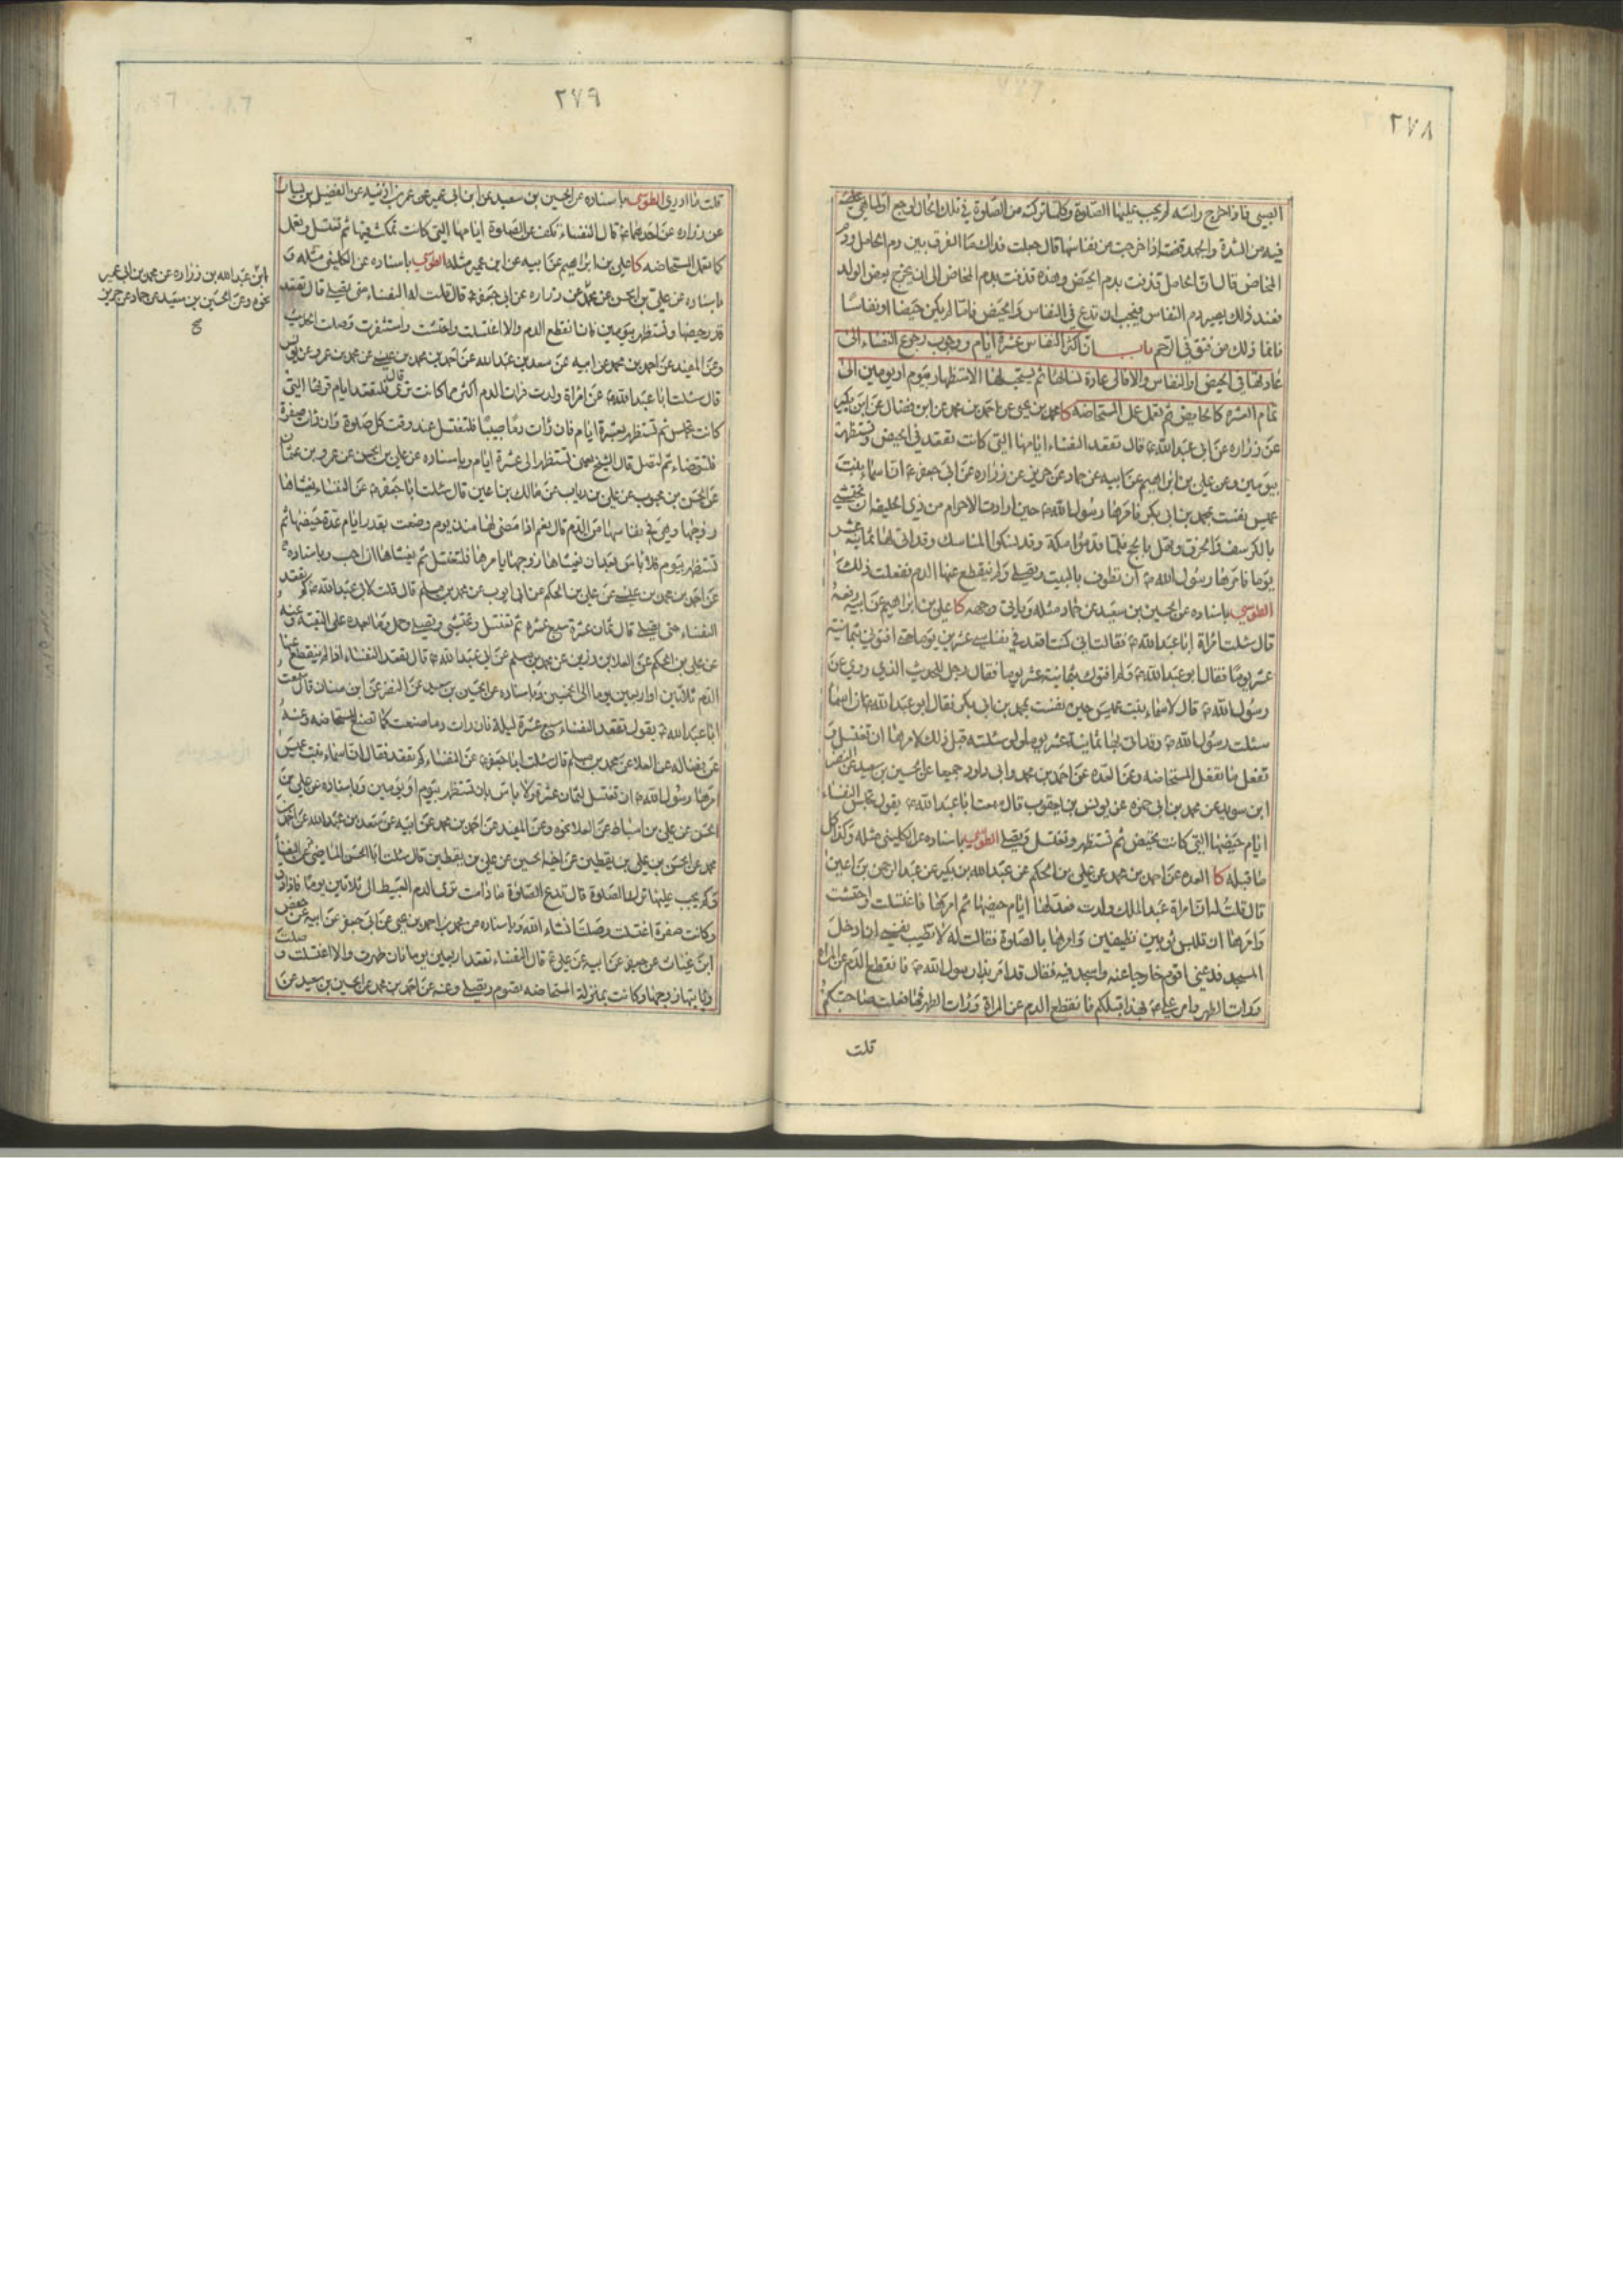 ٢٧٨
اليسى فاذا خرج راسه لم يجب عليها الصلوة وكلما تركته من الصلوة في تلك الحال لوجع او لما هي عليه
فيه من الشدة والجهد قضته اذا خرجت من نفاسها قال جعلت فداك ما الفرق بين دم الحامل ودم
المخاض قال ان الحامل قذفت بدم الحيض وهذه قذفت بدم المخاض الى ان يخرج بعض الولد
فعند ذلك يصير دم النفاس فيجب ان تدع في النفاس والحيض فاما ما لم يكن حيضا او نفاسا
فانما ذلك من فتق في الرحم باب ان اكثر النفاس عشرة ايام ووجوب رجوع النفساء الى
عادتها في الحيض او النفاس والا فالى عادة نسائها ثم يستحب لها الاستظهار بيوم او يومين الى
تمام العشرة كالحايض ثم تعمل عمل المستحاضه كا محمد بن يحيى عن احمد بن محمد عن ابن فضال عن ابن بكير
عن زراره عن ابى عبد الله ع قال تقعد النفساء ايامها التى كانت تقعد في الحيض وتستظهر
بيومين وعن علي بن ابراهيم عن ابيه عن حماد عن حريز عن زراره عن ابى جعفر ع ان اسماء بنت
عميس نفست بمحمد بن ابى بكر فامرها رسول الله ص حين ارادت الاحرام من ذي الحليفه ان تحتشي
بالكرسف والخرق وتهل بالحج فلما قدموا مكة وقد نسكوا المناسك وقد اتى لها ثمانية عشر
يوما فامرها رسول الله ص ان تطوف بالبيت وتصلى ولم ينقطع عنها الدم ففعلت ذلك
الطوسي باسناده عن الحسين بن سعيد عن حماد مثله وياتى وجهه كا علي بن ابراهيم عن ابيه رفعه
قال سئلت امراة ابا عبد الله ع فقالت انى كنت اقعد في نفاسى عشرين يوما حتى افتونى بثمانية
عشر يوما فقال ابو عبد الله ع ولم افتوك بثمانية عشر يوما فقال رجل للحديث الذى روي عن
رسول الله ص قال لاسماء بنت عميس حين نفست بمحمد بن ابى بكر فقال ابو عبد الله ع ان اسماء
سئلت رسول الله ص وقد اتى لها ثمانية عشر يوما ولو سئلته قبل ذلك لامرها ان تغتسل و
تفعل ما تفعل المستحاضه وعن العده عن احمد بن محمد وابى داود جميعا عن الحسين بن سعيد عن النضر
ابن سويد عن محمد بن ابى حمزه عن يونس بن يعقوب قال سمعت ابا عبد الله ع يقول تجلس النفساء
ايام حيضها التى كانت تحيض ثم تستظهر وتغتسل وتصلى الطوسي باسناده عن الكليني مثله وكذا كل
ما قبله كا العده عن احمد بن محمد عن علي بن الحكم عن عبد الله بن بكير عن عبد الرحمن بن اعين
قال قلت له ان امراة عبد الملك ولدت فعد لها ايام حيضها ثم امرها فاغتسلت واحتشت
وامرها ان تلبس ثوبين نظيفين وامرها بالصلوة فقالت له لا تطيب نفسى ان ادخل
المسجد فدعنى اقوم خارجا عنه واسجد فيه فقال قد امر بذا رسول الله ص فانقطع الدم عن المراة
ورات الطهر وامر علي ع بهذا قبلكم فانقطع الدم عن المراة ورات الطهر فما فعلت صاحبتكم
قلت
٢٧٩
قلت ما ادري الطوسي باسناده عن الحسين بن سعيد عن ابن ابى عمير عن عمر بن اذينه عن الفضيل بن يسار
عن زراره عن احدهما ع قال النفساء تكف عن الصلوة ايامها التى كانت تمكث فيها ثم تغتسل وتعمل
كما تعمل المستحاضه كا علي بن ابراهيم عن ابيه عن ابن عمير مثله الطوسي باسناده عن الكلينى مثله و
باسناده عن علي بن الحسن عن محمد عن زراره عن ابى جعفر ع قال قلت له النفساء متى تصلى قال تقعد
قدر حيضها وتستظهر بيومين فان انقطع الدم والا اغتسلت واحتشت واستثفرت وصلت الحديث
وعن المفيد عن احمد بن محمد عن ابيه عن سعد بن عبد الله عن احمد بن محمد بن عيسى عن محمد بن عمرو عن يونس
قال سئلت ابا عبد الله ع عن امراة ولدت فرات الدم اكثر مما كانت ترى قال فلتقعد ايام قرئها التى
كانت تجلس ثم تستظهر بعشرة ايام فان رات دما صبيبا فلتغتسل عند وقت كل صلوة وان رات صفرة
فلتتوضاء ثم لتصل قال الشيخ يعنى تستظهر الى عشرة ايام وباسناده عن علي بن الحسن عن عمرو بن عثمان
عن الحسن بن محبوب عن علي بن رياب عن مالك بن اعين قال سئلت ابا جعفر ع عن النفساء يغشاها
زوجها وهى في نفاسها من الدم قال نعم اذا مضى لها منذ يوم وضعت بقدر ايام عدة حيضها ثم
تستظهر بيوم فلا باس بعد ان يغشاها زوجها يامرها فلتغتسل ثم يغشاها ان احب وباسناده
عن احمد بن محمد بن عيسى عن علي بن الحكم عن ابى ايوب عن محمد بن مسلم قال قلت لابى عبد الله ع كم تقعد
النفساء حتى تصلى قال ثمان عشرة سبع عشرة ثم تغتسل وتحتشى وتصلى وحمل وما بعده على التقية وعنه
عن علي بن الحكم عن العلا بن رزين عن محمد بن مسلم عن ابى عبد الله ع قال تقعد النفساء اذا لم ينقطع عنها
الدم ثلاثين او اربعين يوما الى الخمسين وباسناده عن الحسين بن سعيد عن النضر عن ابن سنان قال سمعت
ابا عبد الله ع يقول تقعد النفساء سبع عشرة ليلة فان رات دما صنعت كما تصنع المستحاضه وعنه
عن فضاله عن العلا عن محمد بن مسلم قال سئلت ابا جعفر ع عن النفساء كم تقعد فقال ان اسماء بنت عميس
امرها رسول الله ص ان تغتسل لثمان عشرة ولا باس بان تستظهر بيوم او يومين وباسناده عن علي بن
الحسن عن علي بن اسباط عن العلا نحوه وعن المفيد عن احمد بن محمد عن ابيه عن سعد بن عبد الله عن احمد بن
محمد عن الحسن بن علي بن يقطين عن اخيه الحسين عن علي بن يقطين قال سئلت ابا الحسن الماضى ع عن النفساء
وكم يجب عليها ترك الصلوة قال تدع الصلوة ما دامت ترى الدم العبيط الى ثلاثين يوما فاذا رق
وكانت صفرة اغتسلت وصلت انشاء الله وباسناده عن محمد بن احمد بن يحيى عن ابى جعفر عن ابيه عن حفص
ابن غياث عن جعفر عن ابيه عن علي ع قال النفساء تقعد اربعين يوما فان طهرت والا اغتسلت وصلت و
ياتيها زوجها وكانت بمنزلة المستحاضه تصوم وتصلى وعنه عن احمد بن محمد عن الحسين بن سعيد عن
ابن عبد الله بن زراره عن محمد بن ابى عمير
نحوه وعن الحسين بن سعيد عن حماد عن حريز